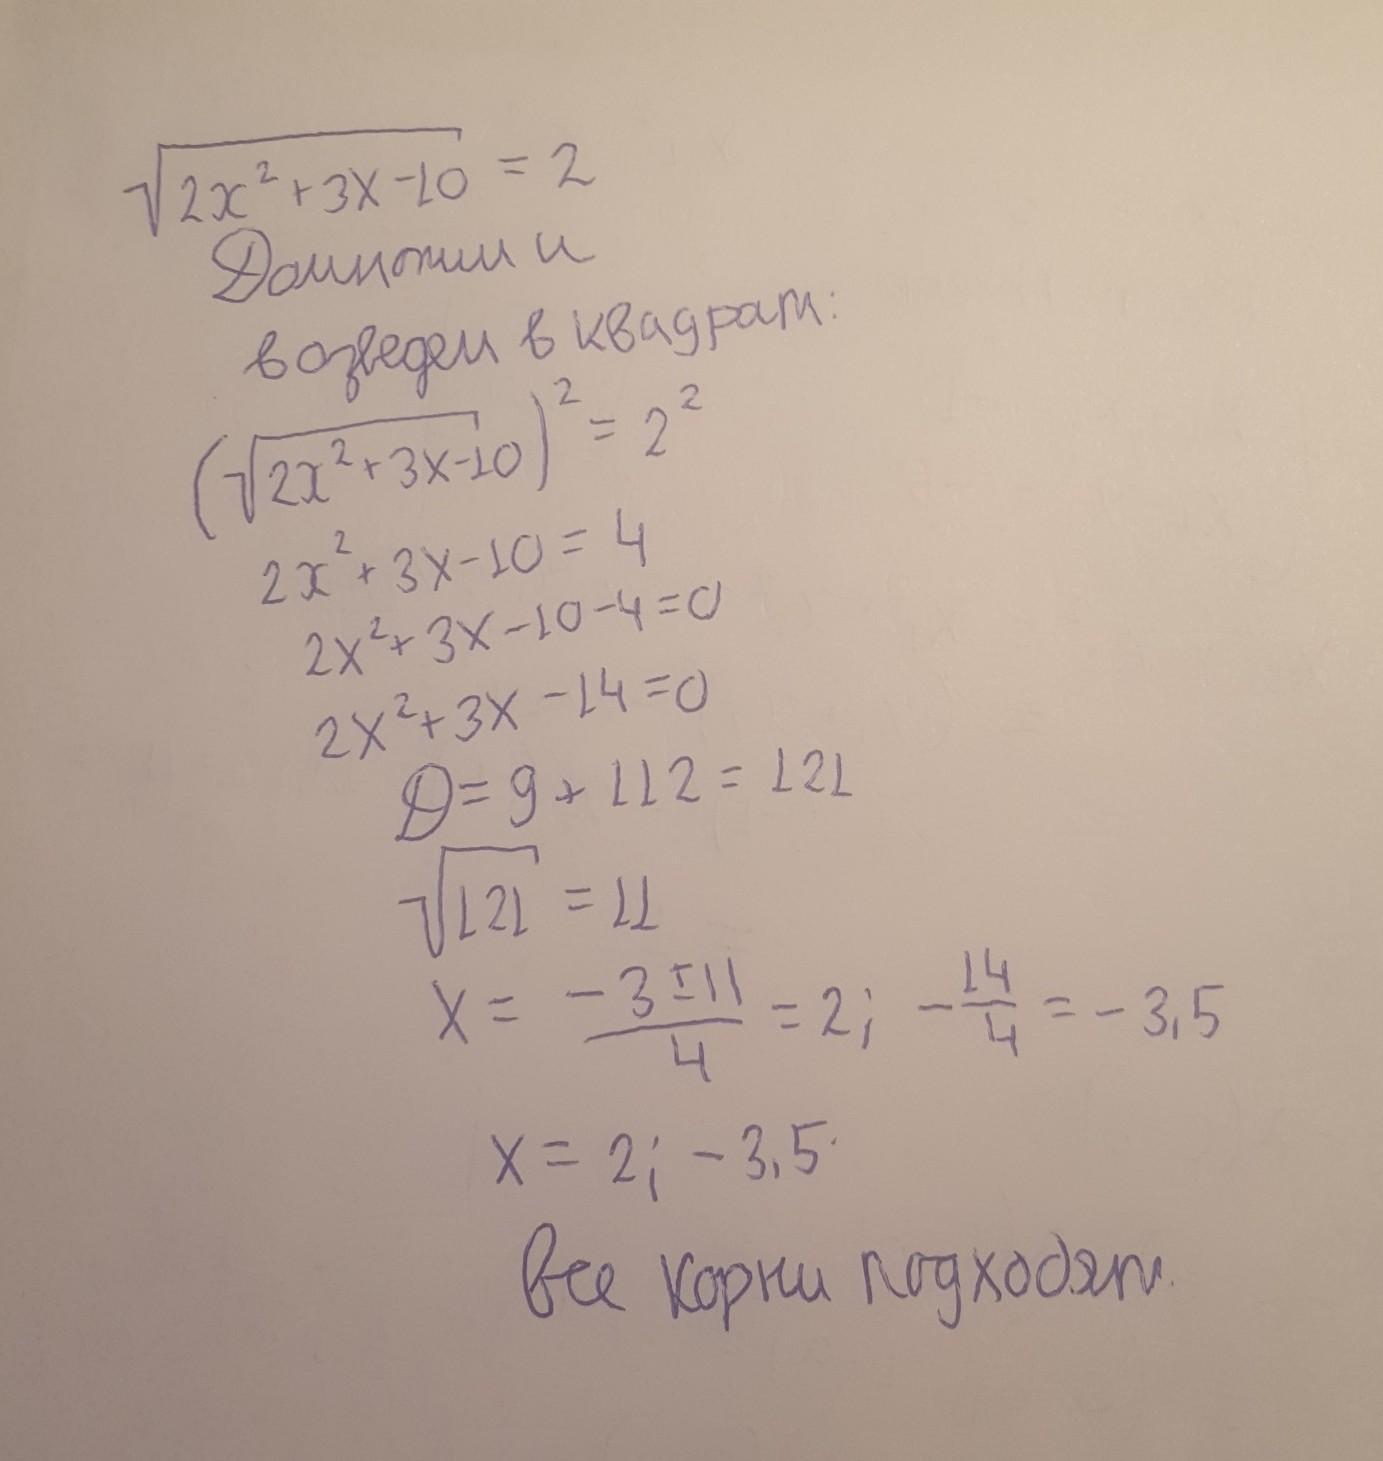 √(2x²+3x-10) = 2
Домножим и
возведем в квадрат:
(√(2x²+3x-10))² = 2²
2x²+3x-10 = 4
2x²+3x-10-4=0
2x²+3x-14=0
D=9+112=121
√121 = 11
x = (-3±11)/4 = 2; -14/4 = -3,5
x = 2; -3,5
Все корни подходят.